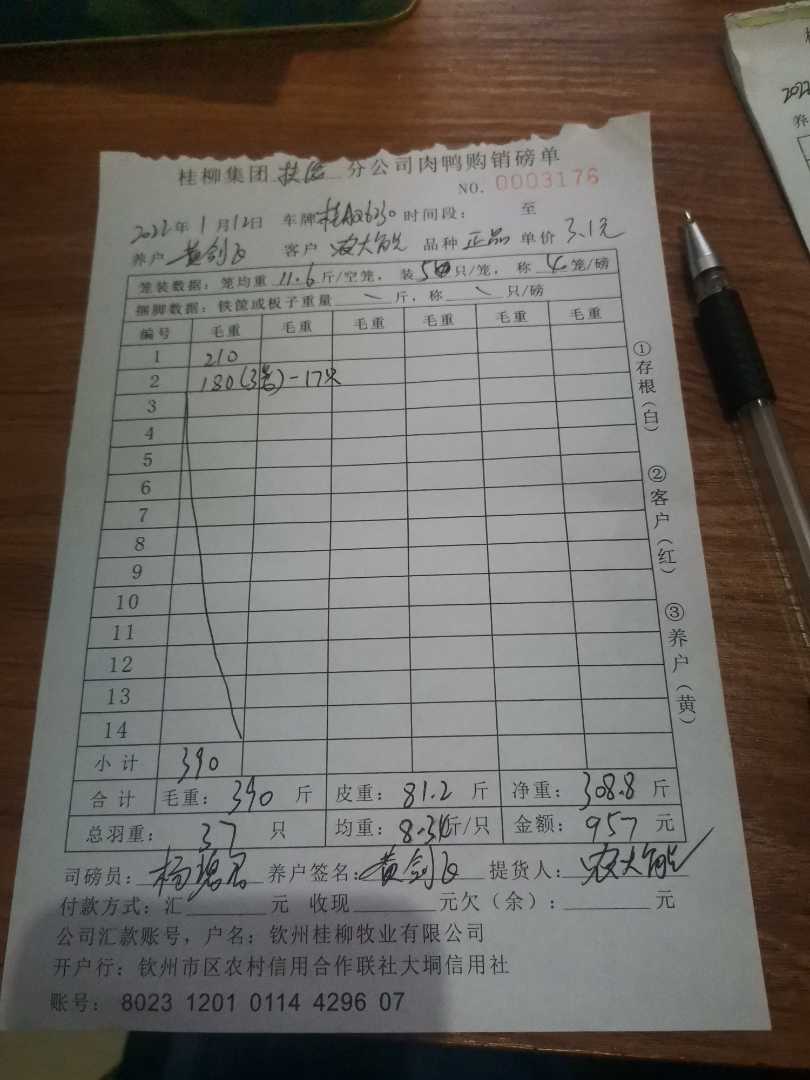 桂柳集团 扶绥 分公司肉鸭购销磅单
NO. 0003176
2022年 1月12日 车牌桂A026230 时间段： 至
养户 黄剑飞 客户 农大能 品种 正品 单价 3.1元
笼装数据：笼均重 11.6 斤/空笼， 装 5 只/笼， 称 4 笼/磅
捆脚数据：铁筐或板子重量 \ 斤，称 \ 只/磅
编号 毛重 毛重 毛重 毛重 毛重 毛重
1 210
2 180(3笼)-17只
3
4
5
6
7
8
9
10
11
12
13
14
小计 390
合计 毛重： 390 斤 皮重： 81.2 斤 净重： 308.8 斤
总羽重： 37 只 均重： 8.34斤/只 金额： 957 元
司磅员： 养户签名：黄剑飞 提货人：农大能
付款方式：汇 元 收现 元欠（余）： 元
公司汇款账号，户名：钦州桂柳牧业有限公司
开户行：钦州市区农村信用合作联社大垌信用社
账号： 8023 1201 0114 4296 07
①存根（白）
②客户（红）
③养户（黄）
2022
养